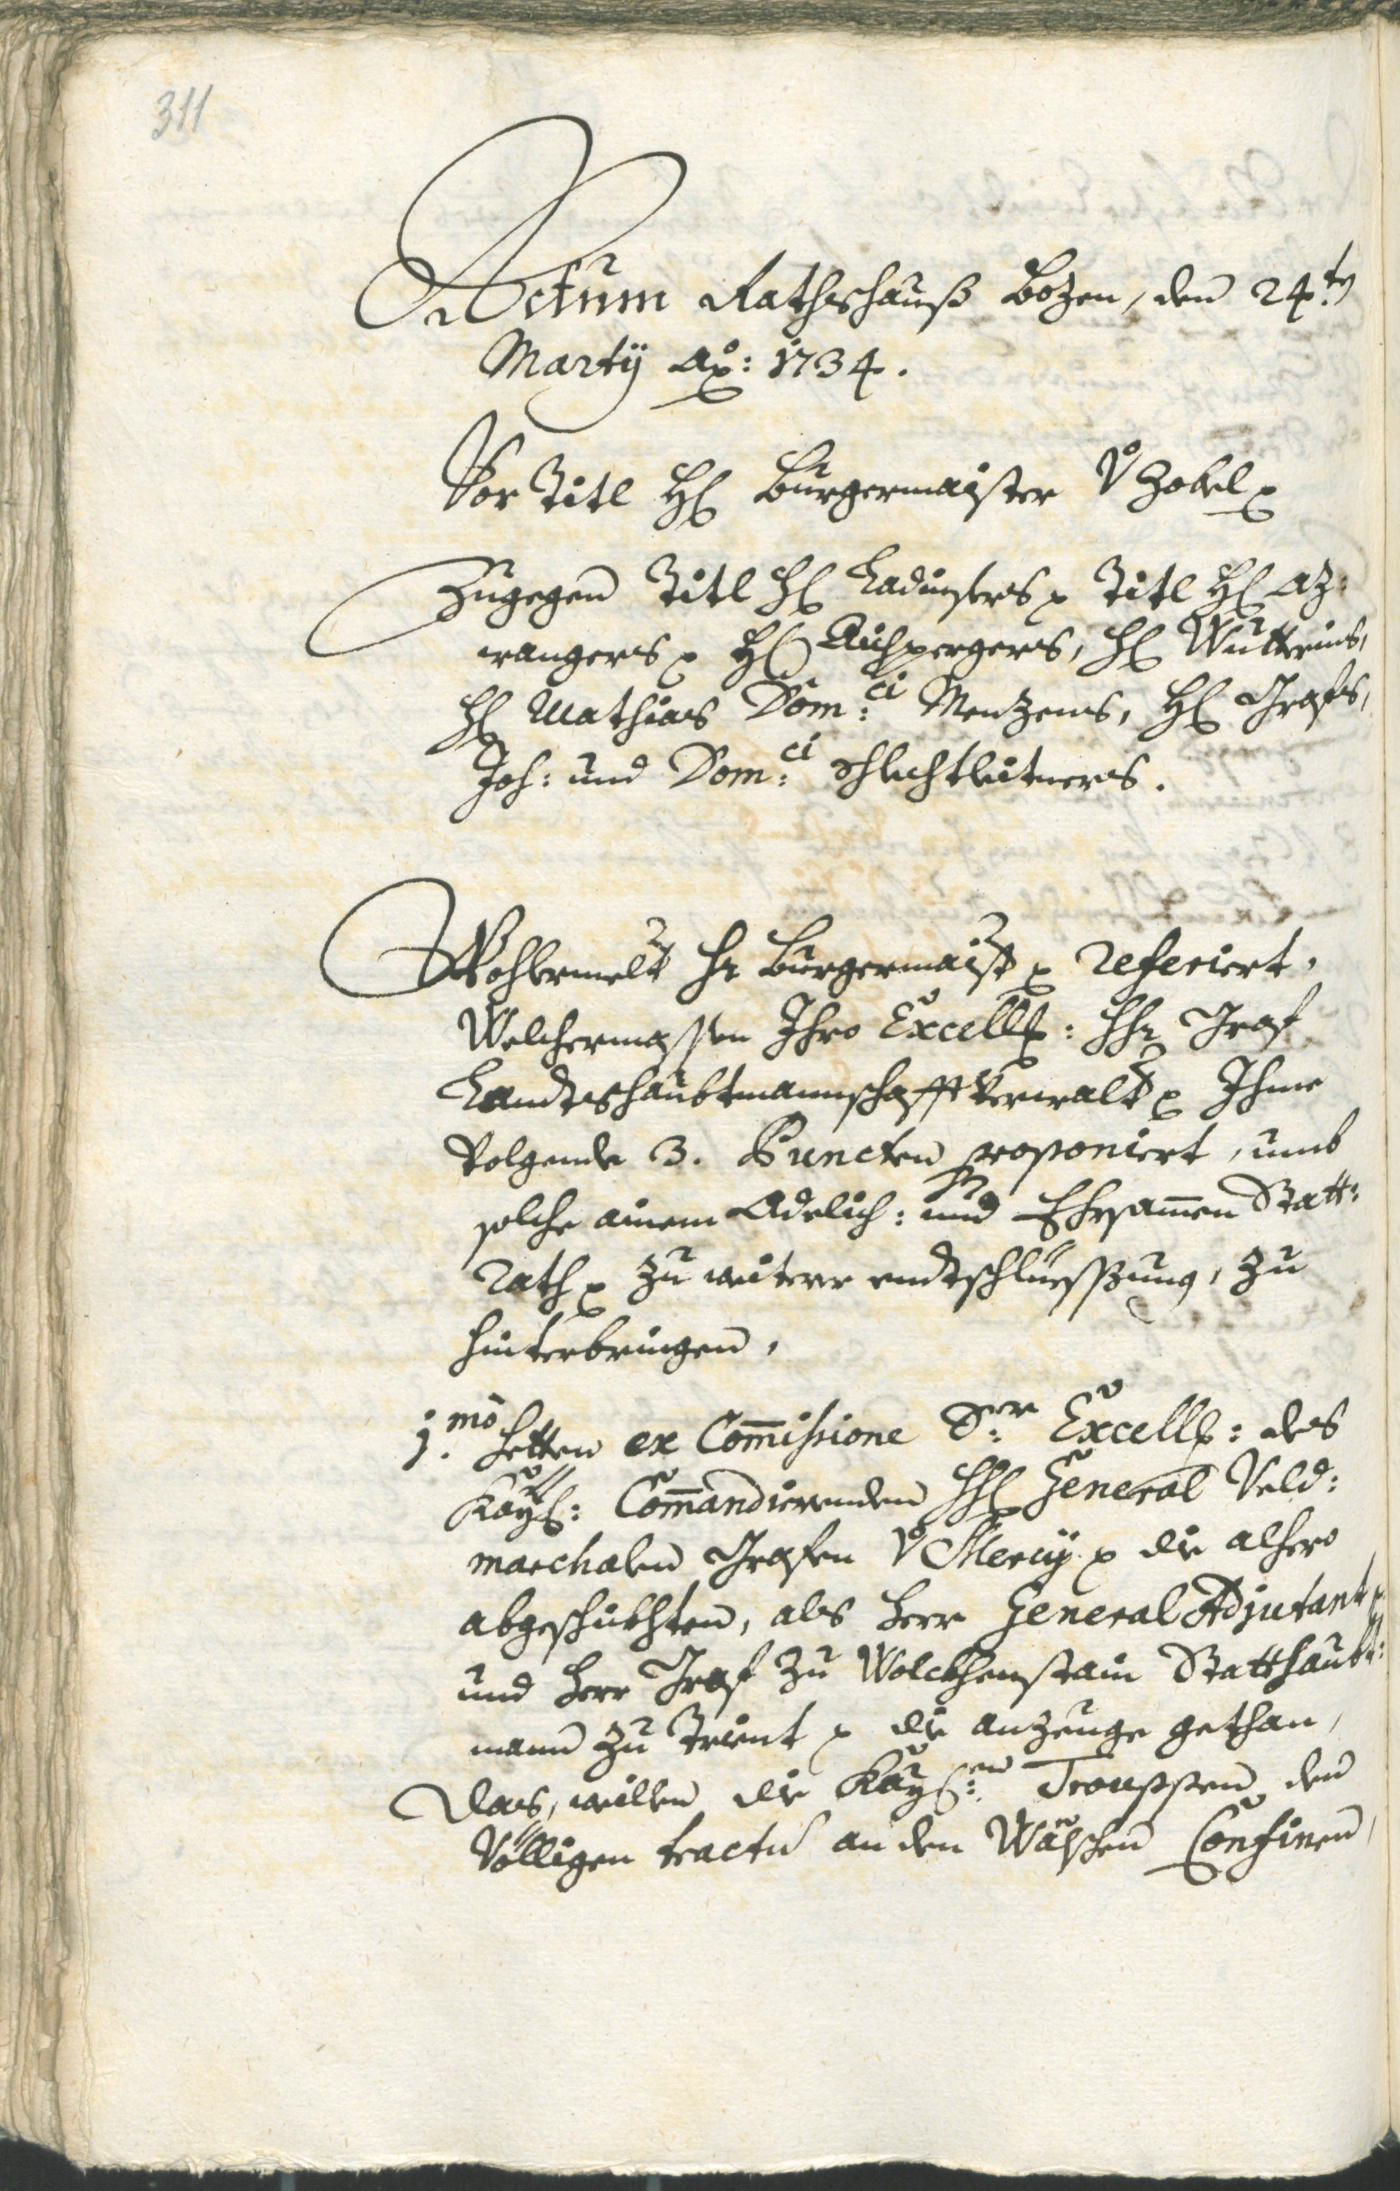 311
Actum Rathshauß Bozen, den 24.ten
Martÿ Ao: 1734.
Vor Titl H: Burgermaister v Zobel p
Zugegen Titl H: Ladurners p Titl H: Az:
wangers p H: Aichpergers, H: Wutterins,
H: Mathias Dom:ci Menzens, H: Grafs,
Joh: und Dom:ci Schlechtleitners.
Wohlermelt Hr Burgermaister p referiert,
Welchermassen Ihro Excell: Hhr Graf
Landtshaubtmannschafft Verwalter p Ihme
Volgende 3. Puncten proponiert, umb
solche ainem Adelich: und Ehrsammen Statt:
rath p zu weiterer endtschluessung, zu
hinterbringen,
1.mo hetten ex Commissione Sr. Excell: des
Kayß: Commandierenden HH: General Veld:
marchalen Grafen v Mercÿ p die alhero
abgeschickhten, als Herr General Adjutant p
und Herr Graf zu Wolckhenstain Statthaubt:
mann zu Trient p die anzeuge gethan,
das, weillen die Kayß:en Trouppen den
Völligen tractu an den Wälschen Confinen,